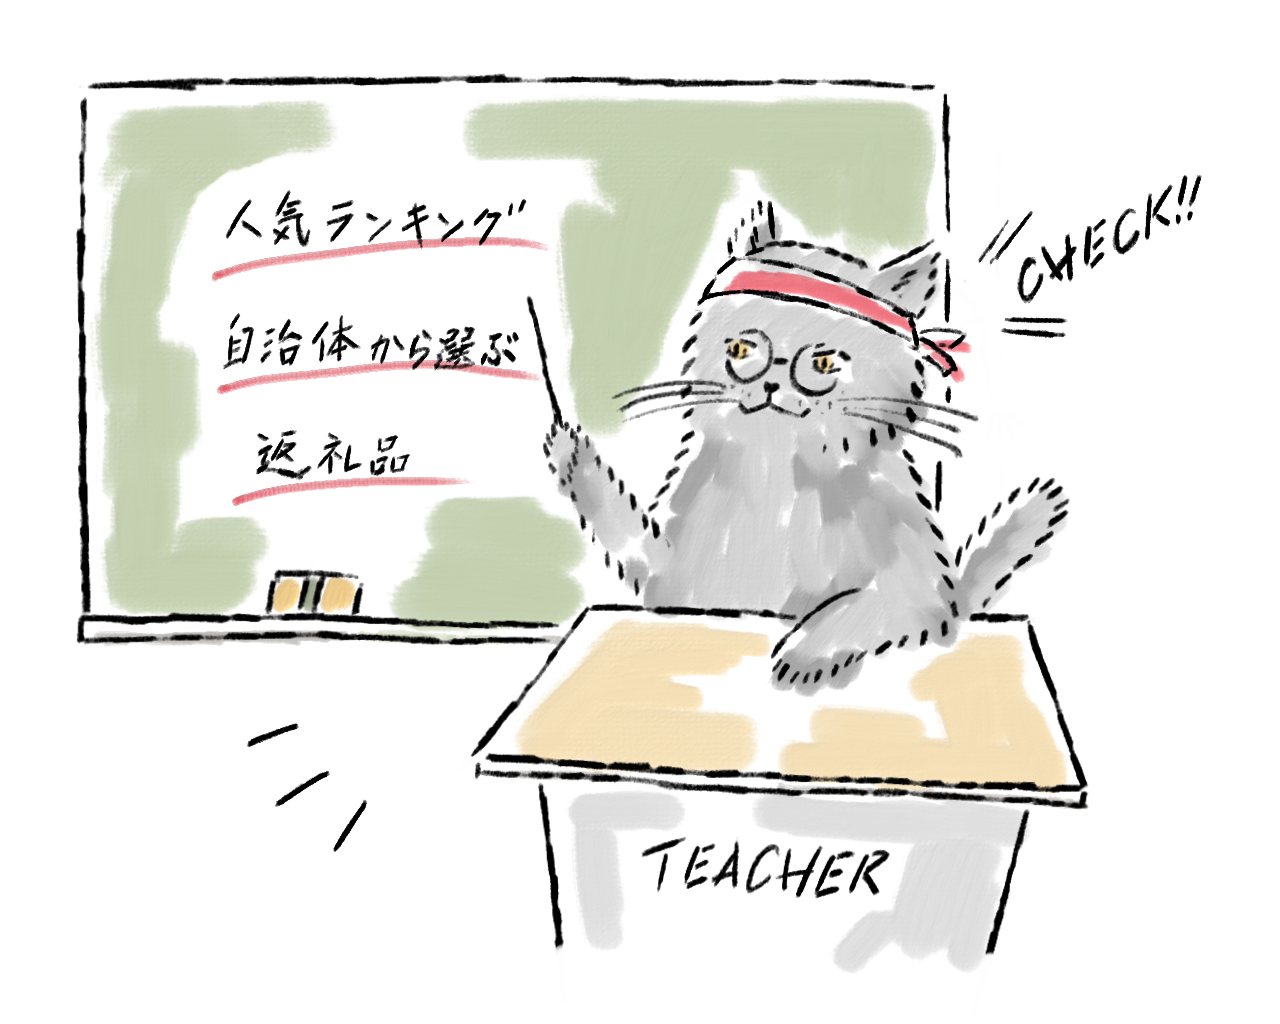 人気ランキング
自治体から選ぶ
返礼品
CHECK!!
TEACHER